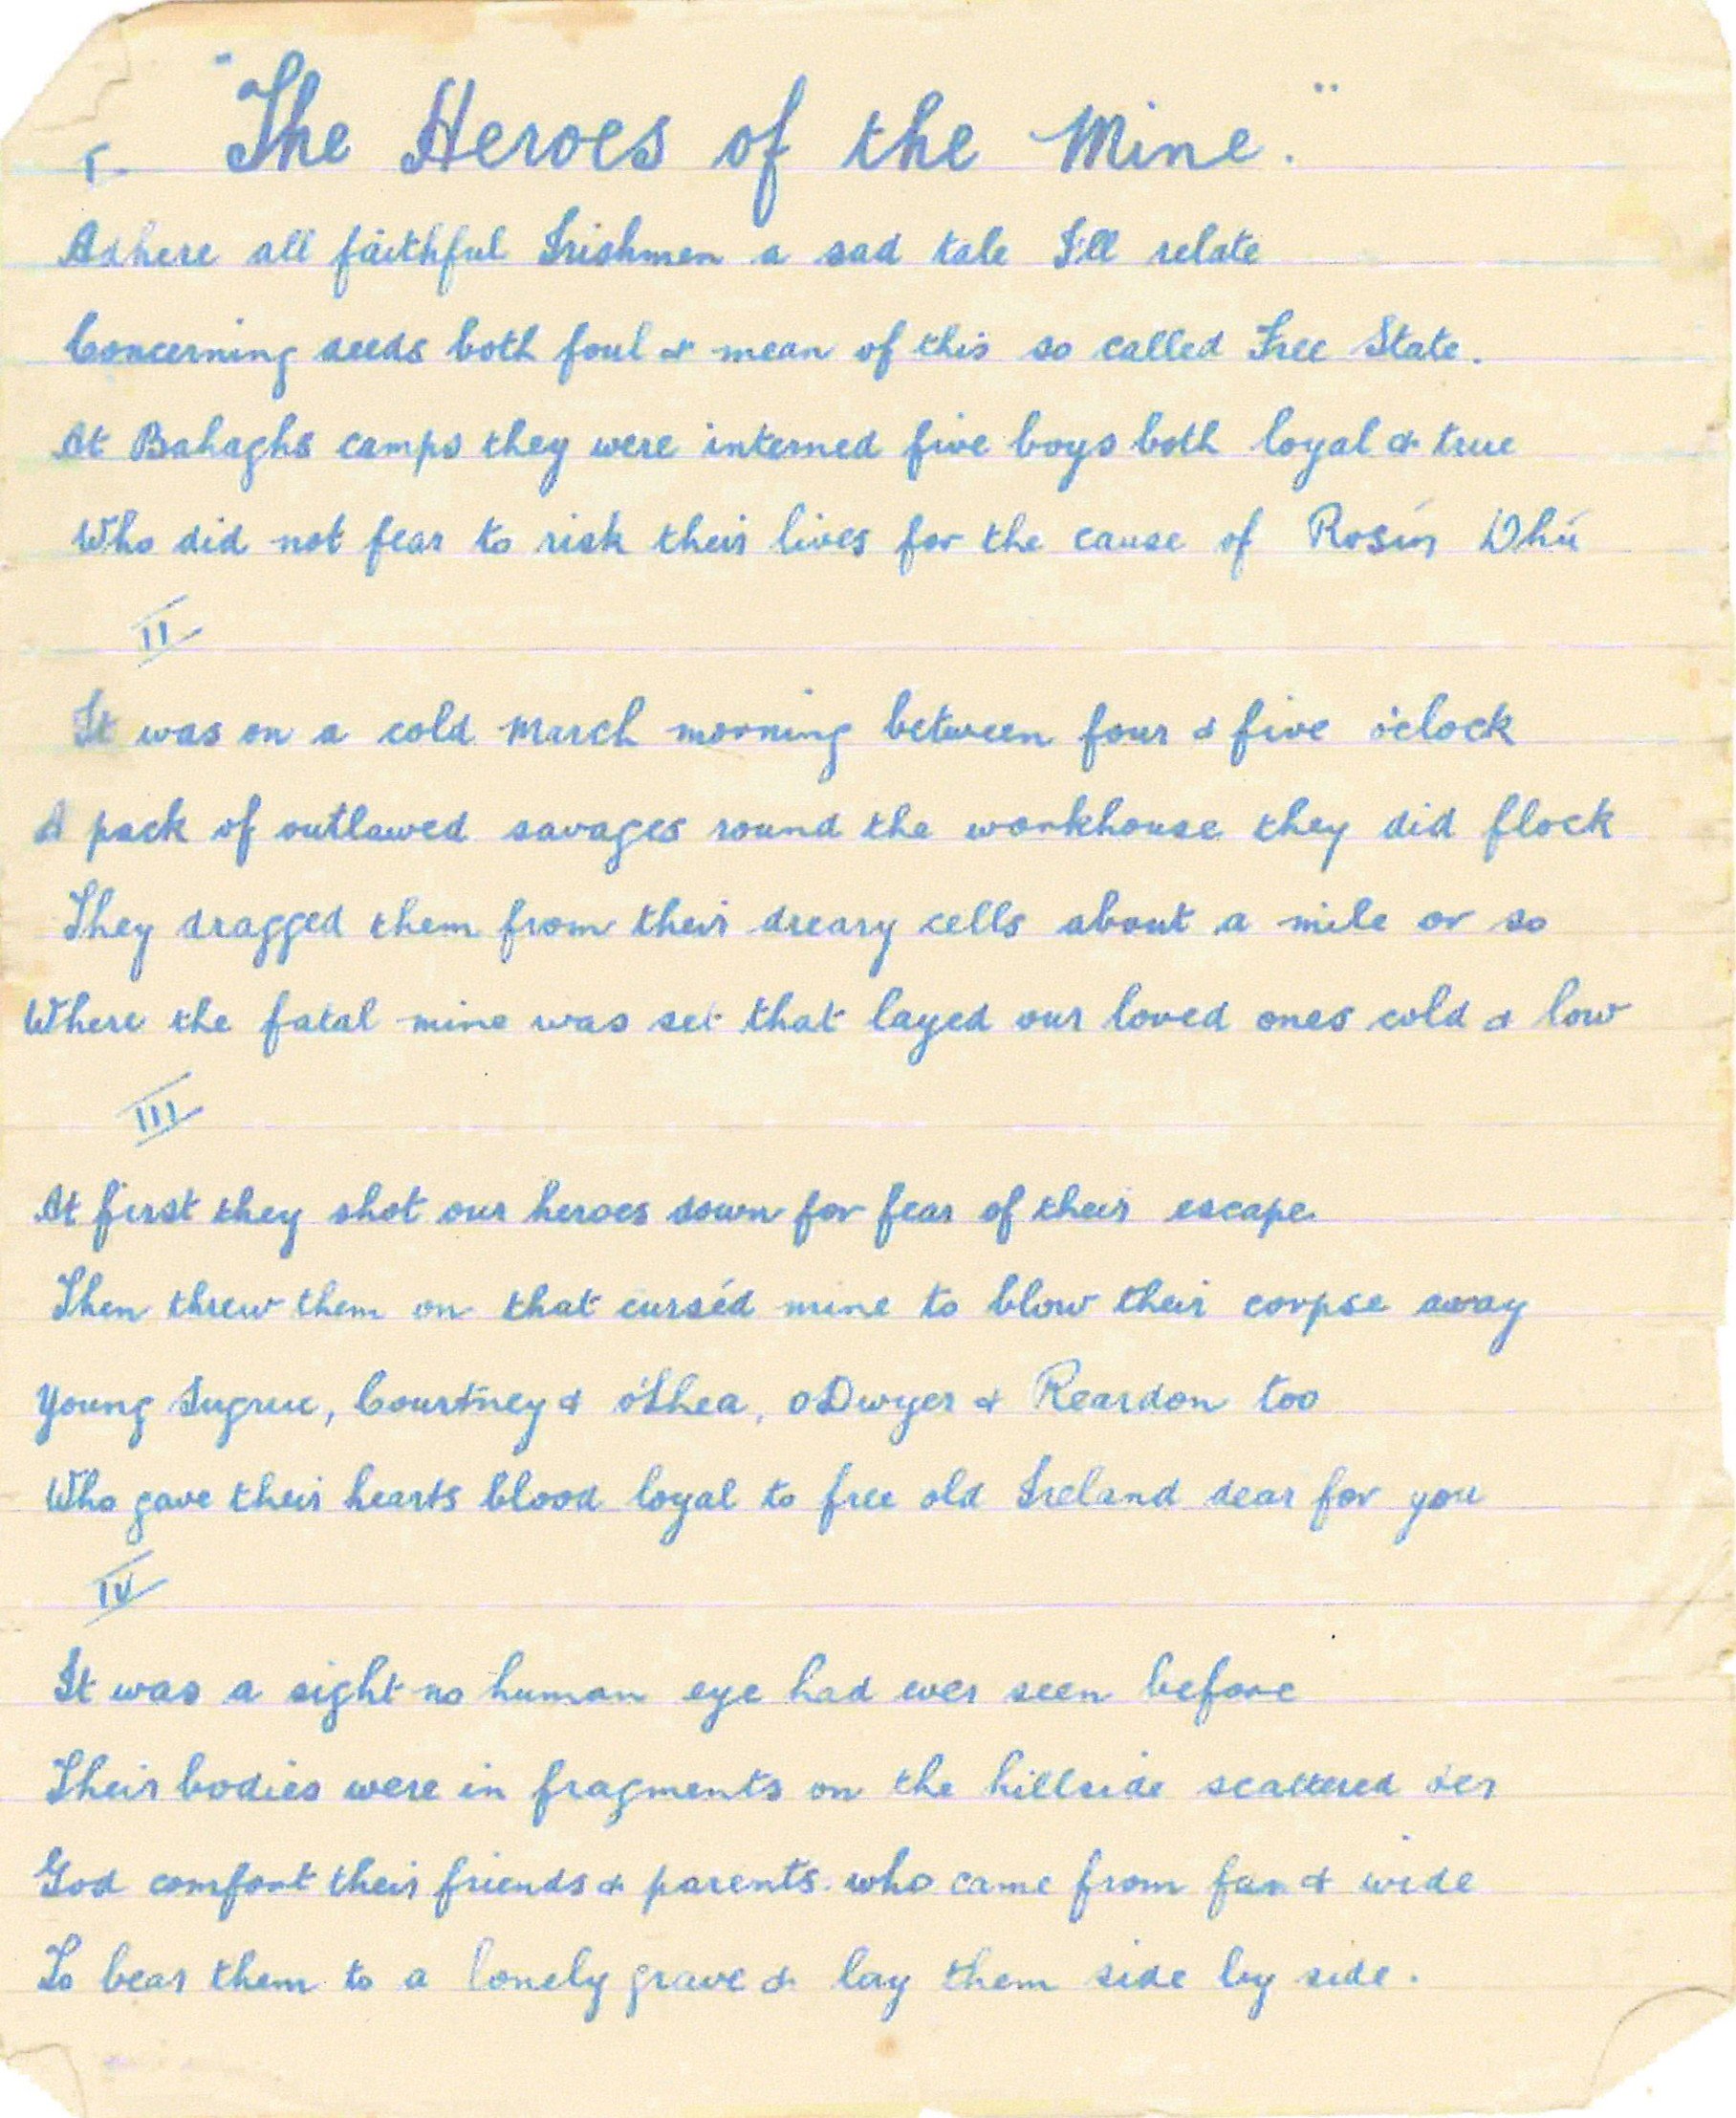 "The Heroes of the Mine."
I.
Adhere all faithful Irishmen a sad tale I'll relate
Concerning deeds both foul & mean of this so called Free State.
At Bahaghs camps they were interned five boys both loyal & true
Who did not fear to risk their lives for the cause of Rosín Dhú
II
It was on a cold March morning between four & five o'clock
A pack of outlawed savages round the workhouse they did flock
They dragged them from their dreary cells about a mile or so
Where the fatal mine was set that layed our loved ones cold & low
III
At first they shot our heroes down for fear of their escape
Then threw them on that curséd mine to blow their corpse away
Young Sugrue, Courtney & o'Shea, oDwyer & Reardon too
Who gave their hearts blood loyal to free old Ireland dear for you
IV
It was a sight no human eye had ever seen before
Their bodies were in fragments on the hillside scattered o'er
God comfort their friends & parents who came from far & wide
To bear them to a lonely grave & lay them side by side.